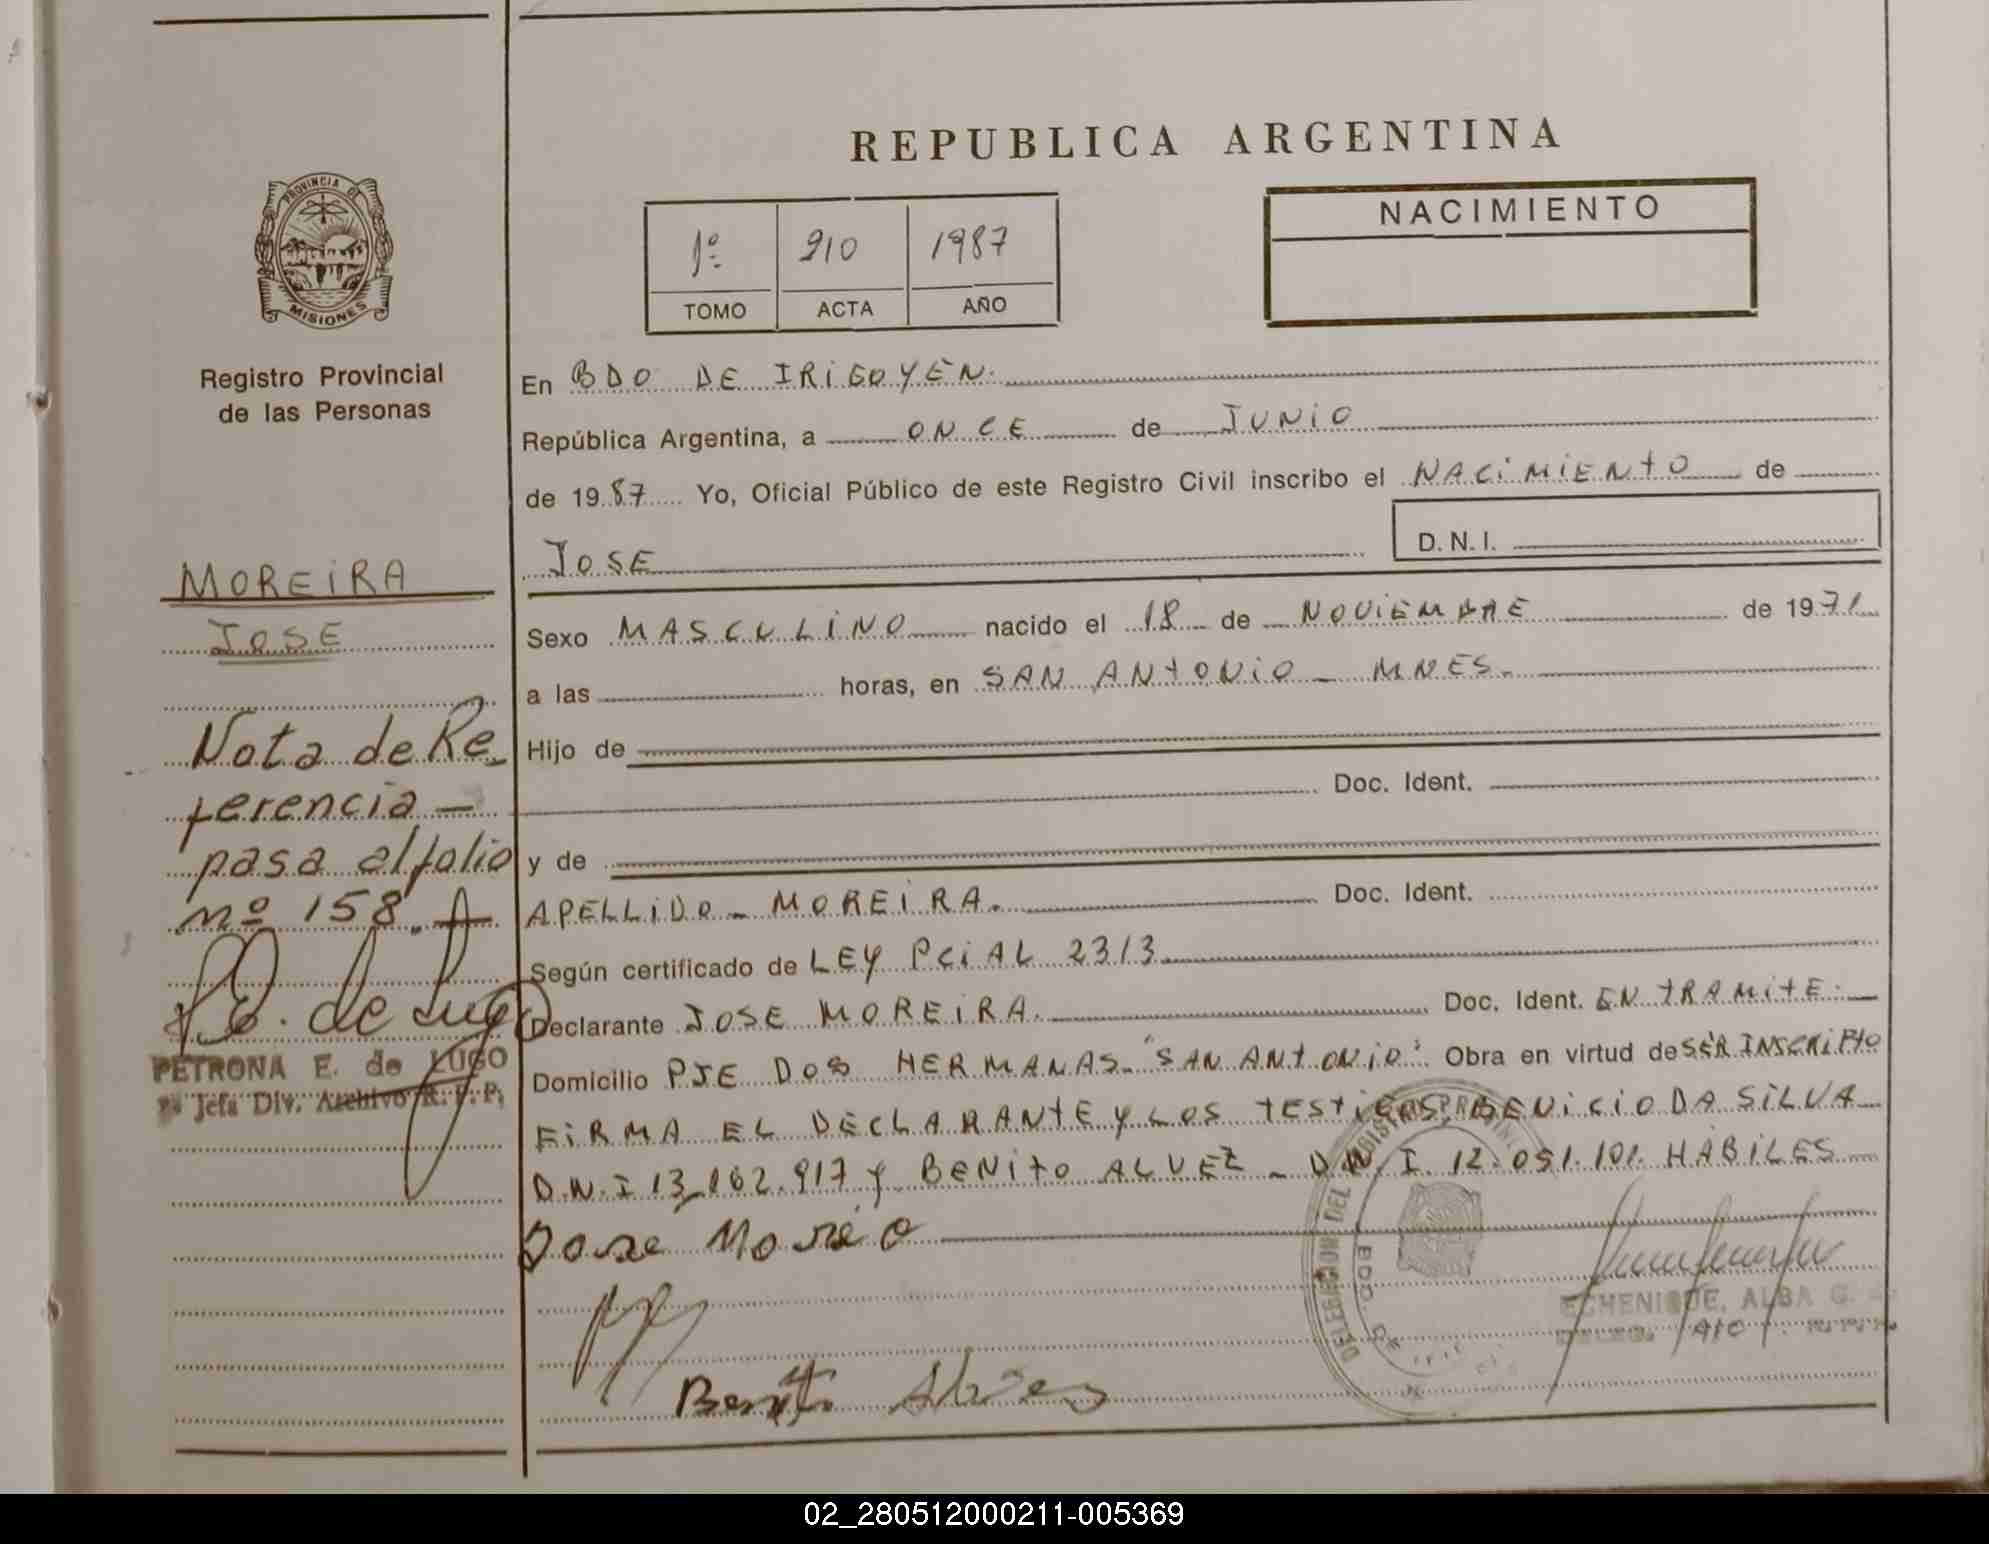 REPUBLICA ARGENTINA
PROVINCIA DE
MISIONES
Registro Provincial
de las Personas
1º 210 1987
TOMO ACTA AÑO
NACIMIENTO
En BDO DE IRIGOYEN.
República Argentina, a ONCE de JUNIO
de 1987 Yo, Oficial Público de este Registro Civil inscribo el NACIMIENTO de
JOSE D.N.I.
MOREIRA
JOSE
Sexo MASCULINO nacido el 18 de NOVIEMBRE de 1971
a las horas, en SAN ANTONIO - MNES.
Hijo de
Doc. Ident.
y de
APELLIDO - MOREIRA. Doc. Ident.
Según certificado de LEY PCIAL 2313
Declarante JOSE MOREIRA. Doc. Ident. EN TRAMITE.
Domicilio PJE DOS HERMANAS "SAN ANTONIO" Obra en virtud de SER INSCRIPTO
FIRMA EL DECLARANTE Y LOS TESTIGOS: BENICIO DA SILVA
D.N.I 13.162.917 y BENITO ALVEZ - D.N.I. 12.051.101. HABILES
Nota de Re_
ferencia -
pasa al folio
nº 158.
P.E. de Lugo
PETRONA E. de LUGO
Jefa Div. Archivo R.P.P.
José
Benito Alves
DELEGACION DEL REGISTRO
BDO. DE
ECHENIQUE, ALBA G.
02_280512000211-005369